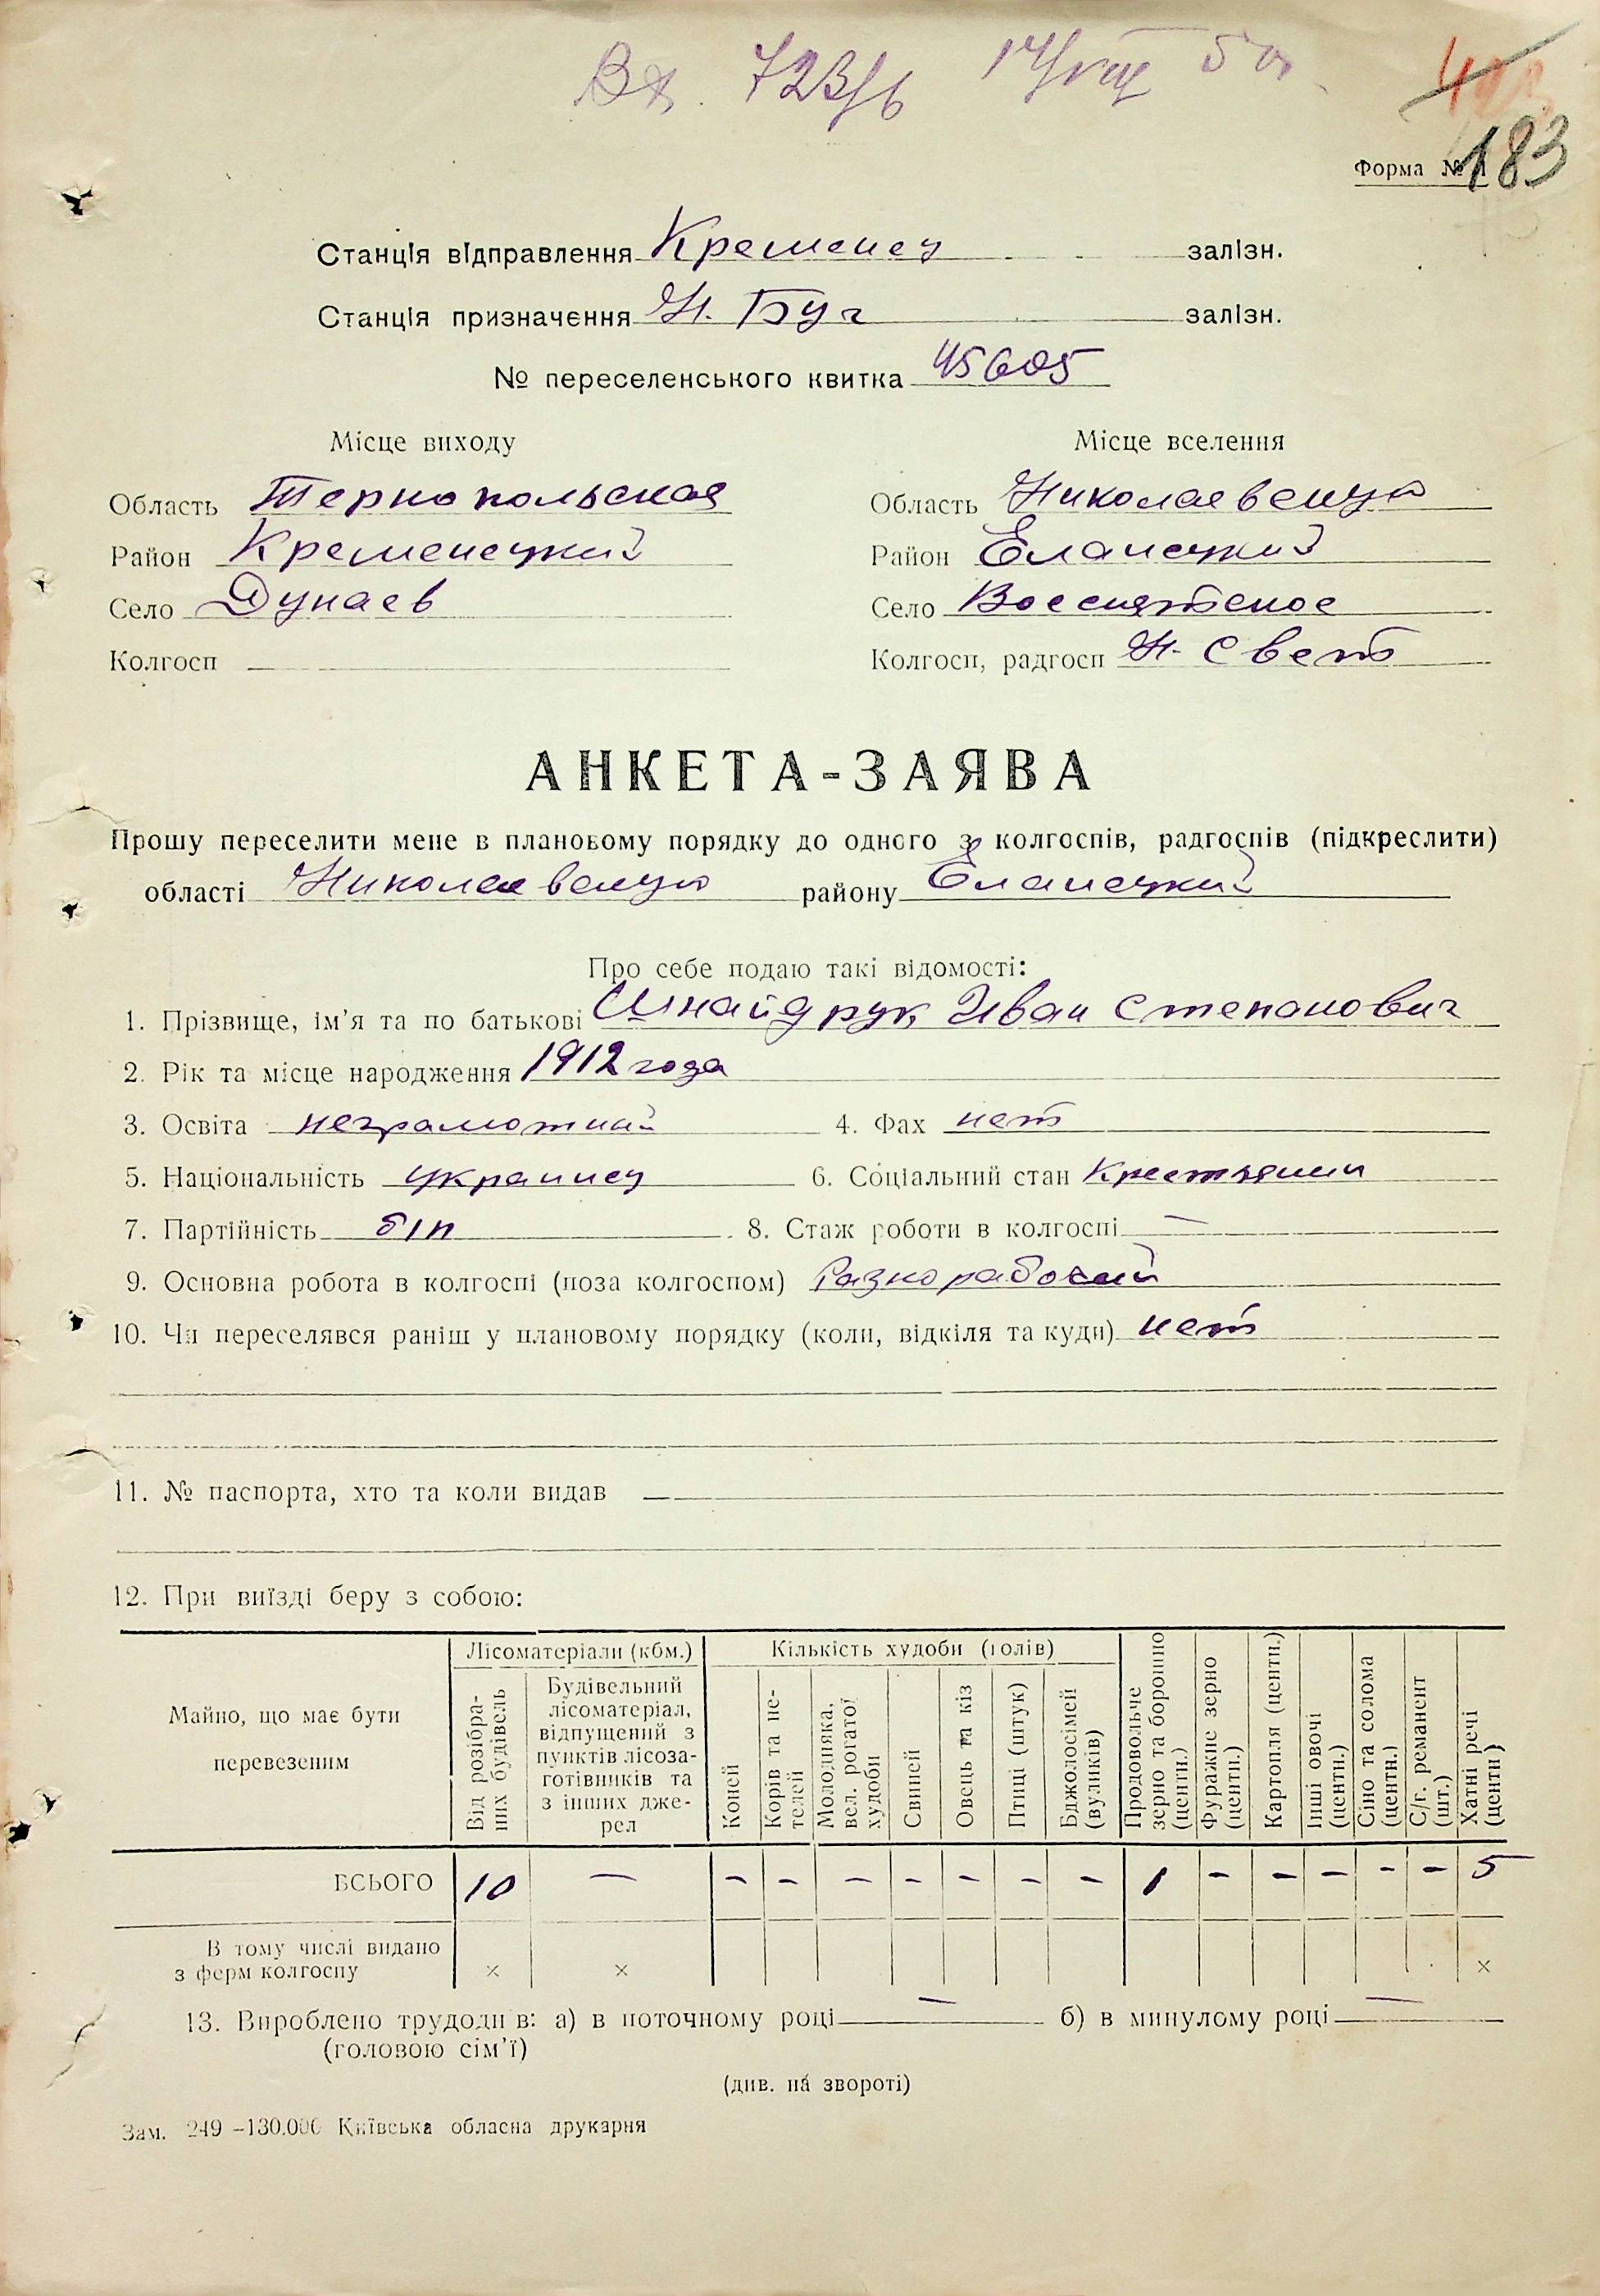 Вх. 723/6 17/VIII 50г.
183
Форма № 1
Станція відправлення Кременец залізн.
Станція призначення Н. Буг залізн.
№ переселенського квитка 45605
Місце виходу Місце вселення
Область Тернопольская Область Николаевскую
Район Кременецкий Район Еланецкий
Село Дунаев Село Воссиятское
Колгосп — Колгосп, радгосп Н. Свет
АНКЕТА-ЗАЯВА
Прошу переселити мене в плановому порядку до одного з колгоспів, радгоспів (підкреслити)
області Николаевскую району Еланецкий
Про себе подаю такі відомості:
1. Прізвище, ім'я та по батькові Шнайдрук Иван Степанович
2. Рік та місце народження 1912 года
3. Освіта неграмотный 4. Фах нет
5. Національність украинец 6. Соціальний стан Крестьянин
7. Партійність б/п 8. Стаж роботи в колгоспі —
9. Основна робота в колгоспі (поза колгоспом) Разнорабочий
10. Чи переселявся раніш у плановому порядку (коли, відкіля та куди) нет
11. № паспорта, хто та коли видав —
12. При виїзді беру з собою:
Майно, що має бути перевезеним
Лісоматеріали (кбм.)
Від розібраних будівель
Будівельний лісоматеріал, відпущений з пунктів лісозаготівників та з інших джерел
Кількість худоби (голів)
Коней
Корів та нетелей
Молодняка, вел. рогатої худоби
Свиней
Овець та кіз
Птиці (штук)
Бджолосімей (вуликів)
Продовольче зерно та борошно (центн.)
Фуражне зерно (центн.)
Картопля (центн.)
Інші овочі (центн.)
Сіно та солома (центн.)
С/г. реманент (шт.)
Хатні речі (центн)
ВСЬОГО 10 — – – – – – – – 1 – – – – – 5
В тому числі видано
з ферм колгоспу × × ×
13. Вироблено трудоднів: а) в поточному році — б) в минулому році —
(головою сім'ї)
(див. на звороті)
Зам. 249 –130.000 Київська обласна друкарня